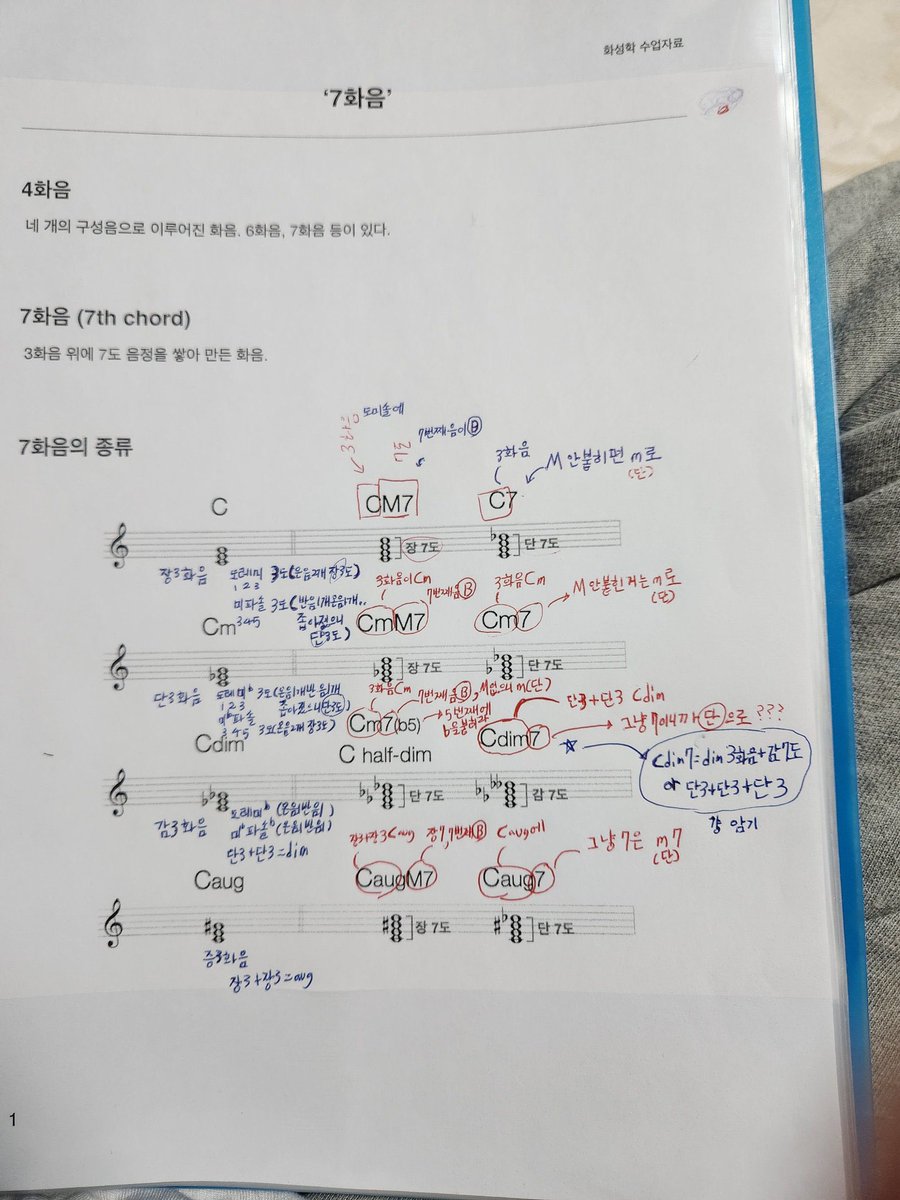 화성학 수업자료
‘7화음’
4화음
네 개의 구성음으로 이루어진 화음. 6화음, 7화음 등이 있다.
7화음 (7th chord)
3화음 위에 7도 음정을 쌓아 만든 화음.
7화음의 종류
3화음 도미솔에
7도 7번째음이 B
3화음 M 안붙히면 m로
(단)
C CM7 C7
장 7도 단 7도
장3화음 도레미 3도(온음2개 장3도)
1 2 3
미파솔 3도(반음1개온음1개..
345 좁아졌으니
단3도)
3화음이 Cm 7번째음 B 3화음 Cm M 안붙힌거는 m로
(단)
Cm CmM7 Cm7
장 7도 단 7도
단3화음 도레미b 3도(온음1개반음1개
1 2 3 좁아졌으니 단3도)
미b파솔
3 4 5 3도(온음2개 장3도)
3화음 Cm 7번째음 B, M없으니 m(단)
5번째에
b을붙혀라
단3+단3 Cdim
그냥 7이니까 단으로 ???
Cdim Cm7(b5) Cdim7
C half-dim
Cdim7=dim3화음+감7도
or 단3+단3+단3
걍 암기
단 7도 감 7도
감3화음 도레미b (온음반음)
미b파솔b (온음반음)
단3+단3=dim
장3+장3 Caug 장7, 7번째 B Caug에 그냥 7은 m7
(단)
Caug CaugM7 Caug7
장 7도 단 7도
증3화음
장3+장3=aug
1